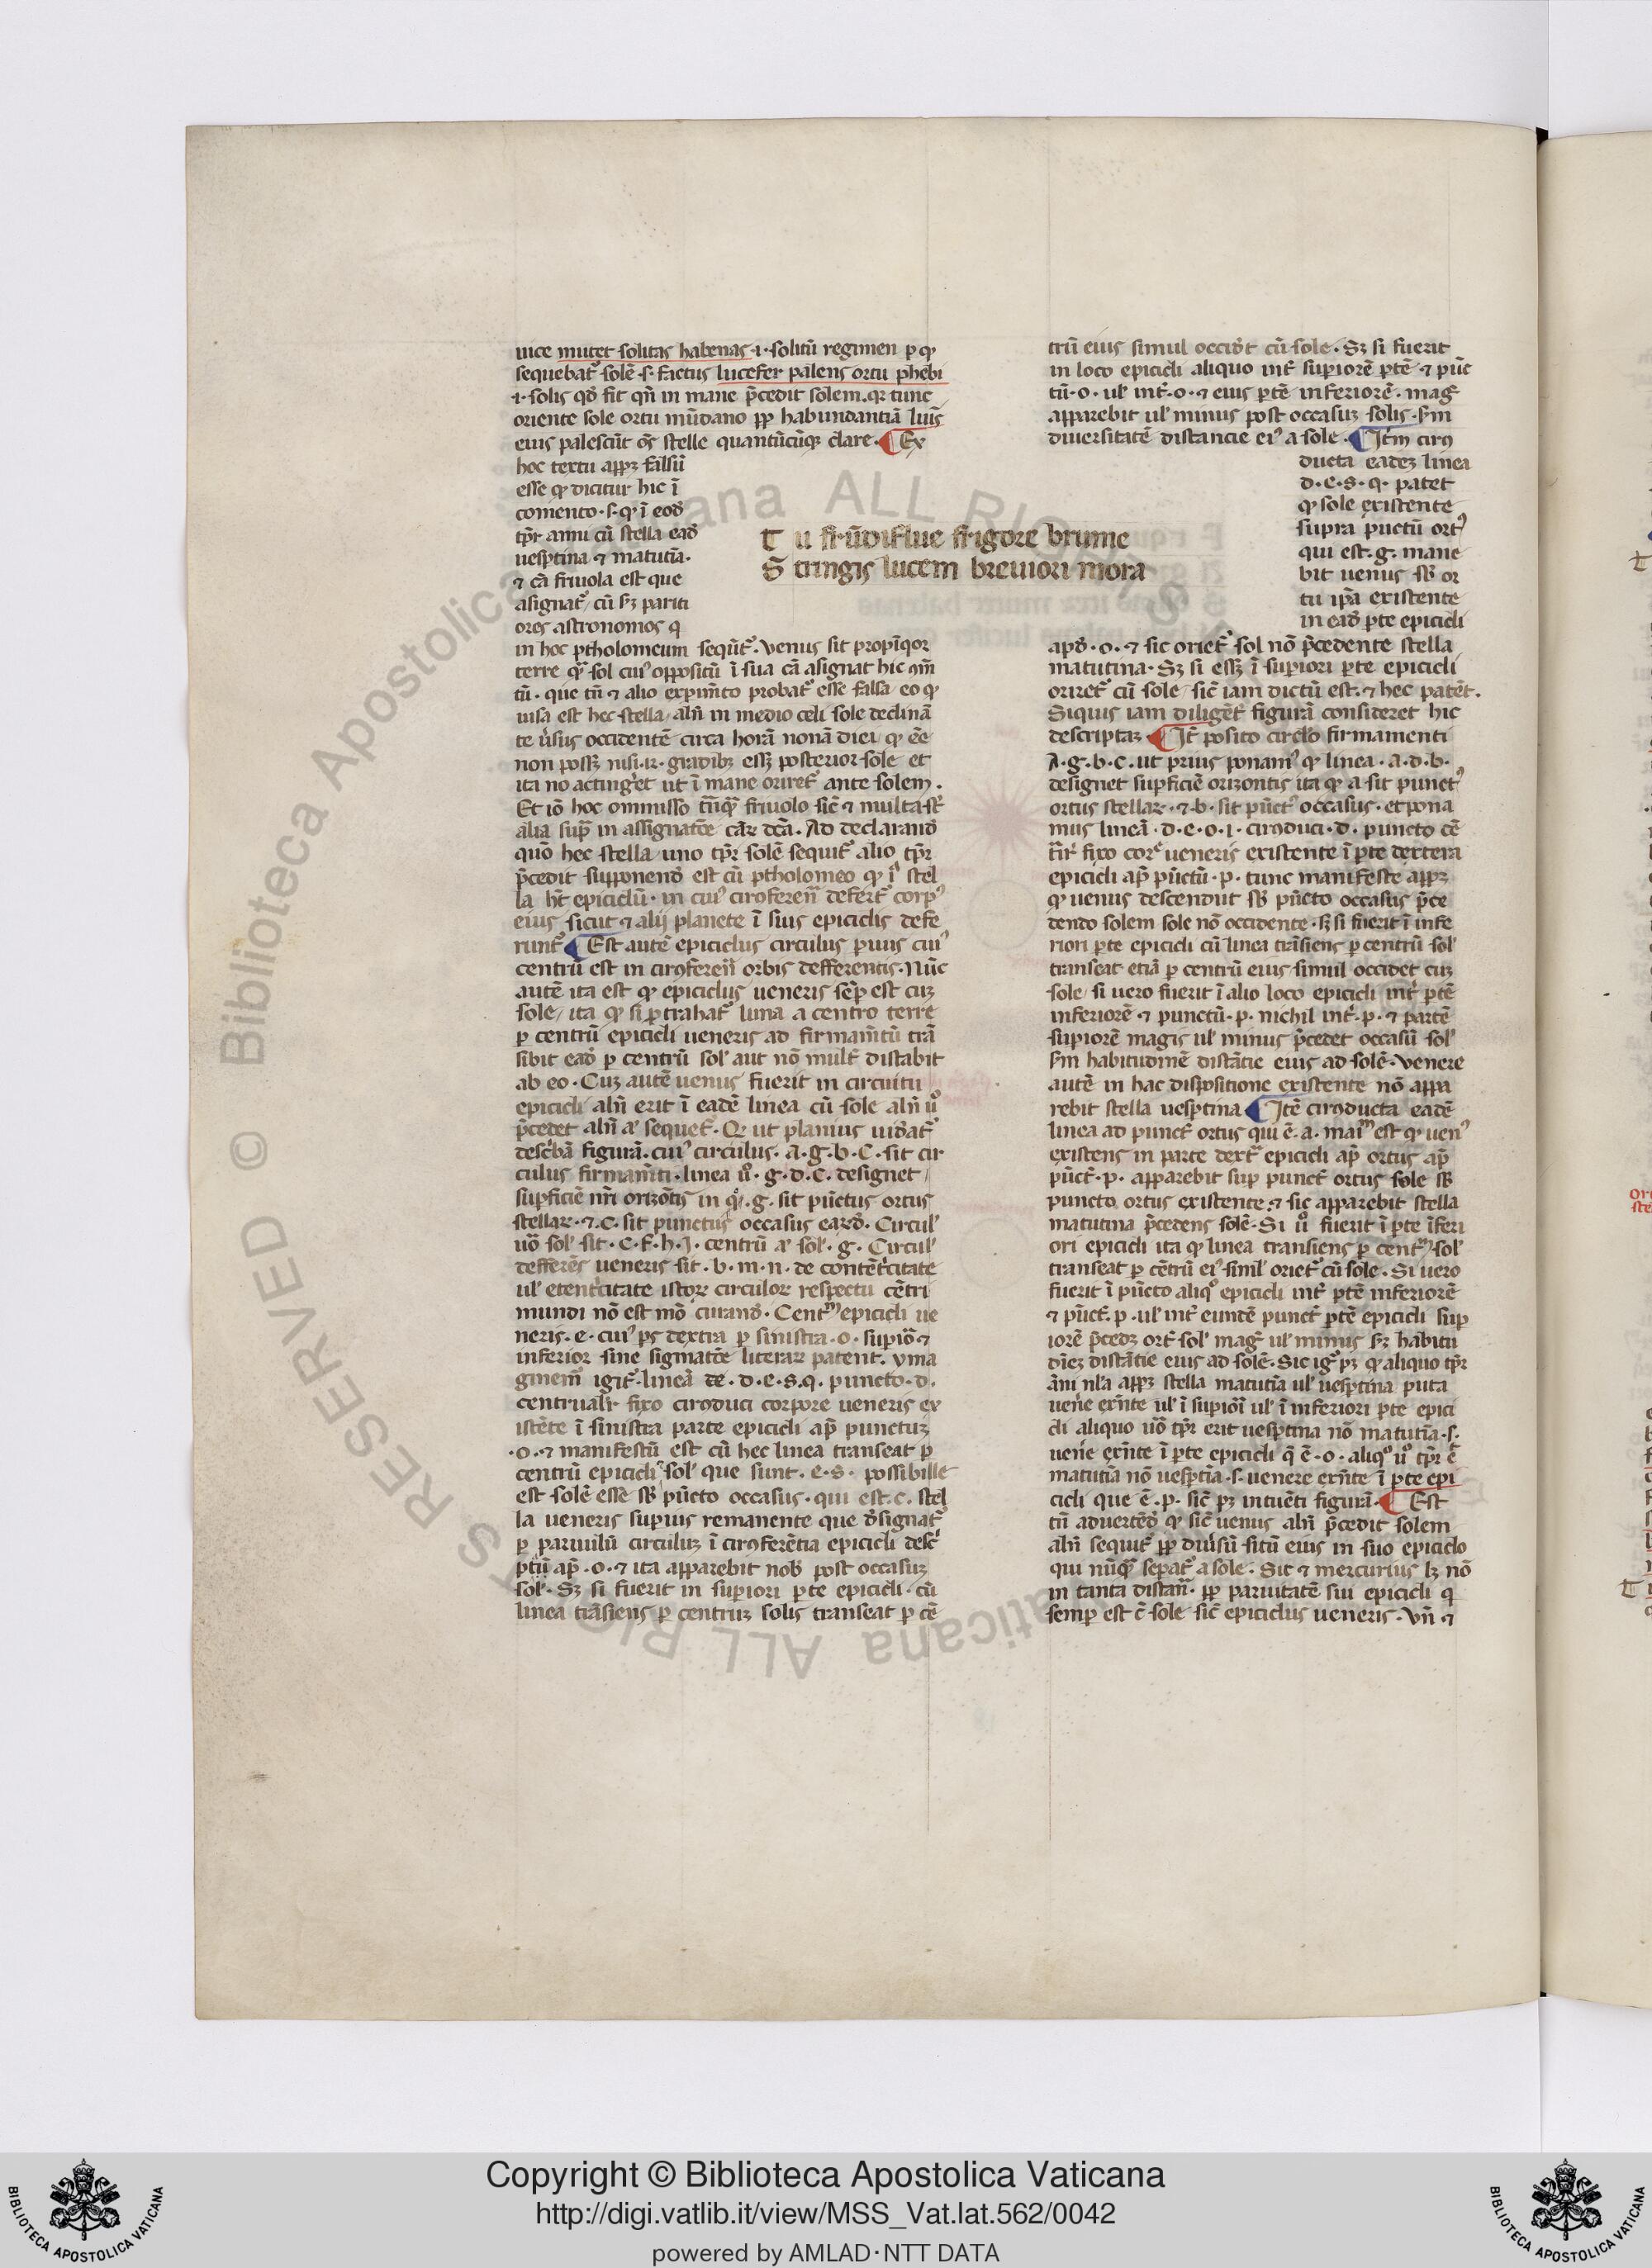 uice mutet solitas habenas ·i· solitũ regimen p qͥ
sequebatᷣ solẽ ·s· factus lucefer palens ortu phebi
·i· solis qđ fit qñ in mane p̃cedit solem. qꝛ tunc
oriente sole ortu mũdano ꝓp habundantiã luĩs
eius palescũt oẽs stelle quantũcũqꝫ clare · ¶ Ex
hoc textu appꝫ falsũ
esse qͥ dicitur hic ĩ
comento ·s· qͥ ĩ eođ
tp̃r anni cũ stella eađ
uesp̃tina ⁊ matutĩa·
⁊ cã friuola est que
asignatᷣ / cũ ẜꝫ pariti
ores astronomos q
in hoc ptholomeum sequũtᷣ. Venus sit propĩqor
terre qᷓ sol cuiꝰ oppositũ ĩ sua cã asignat hic
tũ · que tñ ⁊ alio exp̃im̃to probatᷣ esse falsa / eo qͥ
uisa est hec stella / alñ in medio celi sole declinã
te ũsus occidentẽ circa horã nonã diei qͥ ẽe
non possꝫ nisi gradibꝫ essꝫ posterior sole et
ita no actingẽt ut ĩ mane oriretᷣ ante solem ·
Et iõ hoc ommisso tm̃qᷓ friuolo sic̃ ⁊ multa ẜt
alia supᷓ in assignatõe caꝛ dc̃a. Ad declaranđ
quõ hec stella / uno tp̃r solẽ sequitᷣ alio tp̃r
p̃cedit supponenđ est cũ ptholomeo qͥ stel
la h̃t epiciclũ · in cuiꝰ circũferenñ defertᷣ corpꝰ
eius sicut ⁊ alij planete ĩ suis epiciclis defe
runtᷣ ¶ Est autẽ epiciclus circulus ꝑuus cuiꝰ
centrũ est in circũferenñ orbis defferentis · Nũc
autẽ ita est qͥ epiciclus ueneris sẽp est cuꝫ
sole / ita qͥ si ꝓtrahatᷣ linea a centro terre
ꝑ centrũ epicicli ueneris ad firmam̃tũ trã
sibit eađ ꝑ centrũ sol̃ aut nõ mult̃ distabit
ab eo · Cuꝫ autẽ uenus fuerit in circuitu
epicicli alñ erit ĩ eadẽ linea cũ sole alñ ũo
p̃cedet alñ aͥ sequetᷣ · Qđ ut planius uiđatᷣ
desc̃bã figurã · cuiꝰ circulus · A · g · b · C · sit cir
culus firmam̃ti · linea ũo · g · d · C · designet /
supficiẽ nr̃i orizõtis in qͦ · g · sit pũctus ortus
stellaꝛ · ⁊ · C · sit punctus occasus eaꝛđ · Circul̃
uõ sol̃ sit · e · f · h · J · centrũ aͥ sol̃ · g · Circul̃
defferẽs ueneris sit · b · m · n · de contẽtͥcitate
ul̃ etentͥcitate istoꝛ circuloꝛ respectu cẽtri
mundi nõ est mõ curanđ · Centᷓ epicicli ue
neris · e · cuiꝰ ps dextra · p · sinistra · o · supiõ ⁊
inferior sine sigmatõe literaꝛ patent · yma
ginem̃ igitᷣ · lineã de · d · e · s · q · puncto · d ·
centrualr̃ fixo circũduci corpore ueneris ex
istẽte ĩ sinistra parte epicicli ap̃ punctuꝫ
· o · ⁊ manifestũ est cũ hec linea transeat ꝑ
centrũ epicicli ⁊ sol̃ que sunt · e · s · possibille
est solẽ esse sƀ pũcto occasus · qui est · c · stel
la ueneris supius remanente que đsignatᷣ
ꝑ paruulũ circuluꝫ ĩ circũferẽtia epicicli desc̃
ptũ ap̃ · o · ⁊ ita apparebit nob̃ post occasuꝫ
sol̃ · Sꝫ si fuerit in supiori ꝑte epicicli · cũ
linea trãsiens ꝑ centruꝫ solis transeat ꝑ cẽ
T u frũdiflue frigore brume
S tringis lucem breuiori mora
trũ eius simul occiđt cũ sole · Sꝫ si fuerit
in loco epicicli aliquo int̃ supiorẽ ꝑtẽ · ⁊ pũc
tũ · o · ul̃ int̃ · o · ⁊ eius ꝑtẽ inferiorẽ · mag̃
apparebit ul̃ minus post occasuꝫ solis · ẜm
diuersitatẽ distancie eiꝰ a sole · ¶ Itẽm circũ
ducta eadeꝫ linea
d · e · s · q · patet
qͥ sole existente
supra pũctũ ortꝰ
qui est · g · mane
bit uenus sƀ or
tu ip̃a existente
in eađ ꝑte epicicli
apđ · o · ⁊ sic orietᷣ sol nõ p̃cedente stella
matutina · Sꝫ si essꝫ ĩ supiori ꝑte epicicli
oriretᷣ cũ sole / sic̃ iam dictũ est · ⁊ hec patẽt ·
Siquis iam diligẽt̃ figurã consideret hic
descriptaꝫ ¶ It̃ posito circlo firmamenti
A · g · b · C · ut prius ponamꝰ qͥ linea · a · d · b ·
designet supficiẽ orizontis ita qͥ a sit punctꝰ
ortus stellaꝛ · ⁊ · b · sit pũctꝰ occasus · et pona
mus lineã · d · e · o · i · circũduci · d · puncto cẽ
tr̃ir̃ fixo corꝑe ueneris existente ĩ ꝑte dextera
epicicli ap̃ pũctũ · p · tunc manifeste appꝫ
qͥ uenus descendut sƀ pũcto occasus p̃ce
dendo solem sole nõ occidente · ẜꝫ si fuerit ĩ infe
riori ꝑte epicicli cũ linea trãsiens ꝑ centrũ sol̃
transeat etiã ꝑ centrũ eius simul occidet cuꝫ
sole / si uero fuerit ĩ alio loco epicicli int̃ ꝑtẽ
inferiorẽ ⁊ punctũ · p · nichil int̃ · p · ⁊ partẽ
supiorẽ magis ul̃ minus p̃cedet occasũ sol̃
ẜm habitudinẽ distãtie eius ad solẽ · Venere
autẽ in hac dispositione existente nõ appa
rebit stella uesp̃tina ¶ Itẽ circũducta eadẽ
linea ad punct̃ ortus qui ẽ · a · maĩm est qͥ uenꝰ
existens in parte dext̃ epicicli ap̃ ortus ap̃
pũct̃ · p · apparebit sup punct̃ ortus sole sƀ
puncto ortus existente · ⁊ sic apparebit stella
matutina p̃cedens solẽ · Si ũo fuerit ĩ ꝑte ĩferi
ori epicicli ita qͥ linea transiens ꝑ centᷓ sol̃
transeat ꝑ cẽtrũ eiꝰ simil̃ orietᷣ cũ sole · Si uero
fuerit ĩ pũcto aliqͦ epicicli int̃ ꝑtẽ inferiorẽ
⁊ pũct̃ · p · ul̃ int̃ eundẽ punct̃ ꝑtẽ epicicli sup
iorẽ p̃cedꝫ ort̃ sol̃ mag̃ ul̃ minus ẜꝫ habitu
diẽꝫ distãtie eius ad solẽ · Sic igᷣ pꝫ qͥ aliquo tp̃r
ãni nl̃a appꝫ stella matutĩa ul̃ uesp̃tina puta
uen̾e exñte ul̃ ĩ supiõi ul̃ ĩ inferiori ꝑte epici
cli aliquo uõ tp̃r erit uesp̃tina nõ matutĩa · s ·
uen̾e exñte ĩ ꝑte epicicli q̃ ẽ · o · aliqͦ ũo tp̃r ẽ
matutĩa nõ uesp̃tĩa · s · uenere exñte ĩ ꝑte epi
cicli que ẽ · p · sic̃ pꝫ intuẽti figurã · ¶ Est
tñ aduertẽđ qͥ sic̃ uenus alñ p̃cedit solem
alñ sequitᷣ ꝓp diũsũ situ eius in suo epiciclo
qui nũqᷓ sepatᷣ a sole · Sic ⁊ mercurius lꝫ nõ
in tanta distañ · ꝓp paruitatẽ sui epicicli q
semp est c̃ sole sic̃ epiciclus ueneris · Vñ ⁊
Copyright © Biblioteca Apostolica Vaticana
http://digi.vatlib.it/view/MSS_Vat.lat.562/0042
powered by AMLAD·NTT DATA
BIBLIOTECA APOSTOLICA VATICANA
BIBLIOTECA APOSTOLICA VATICANA